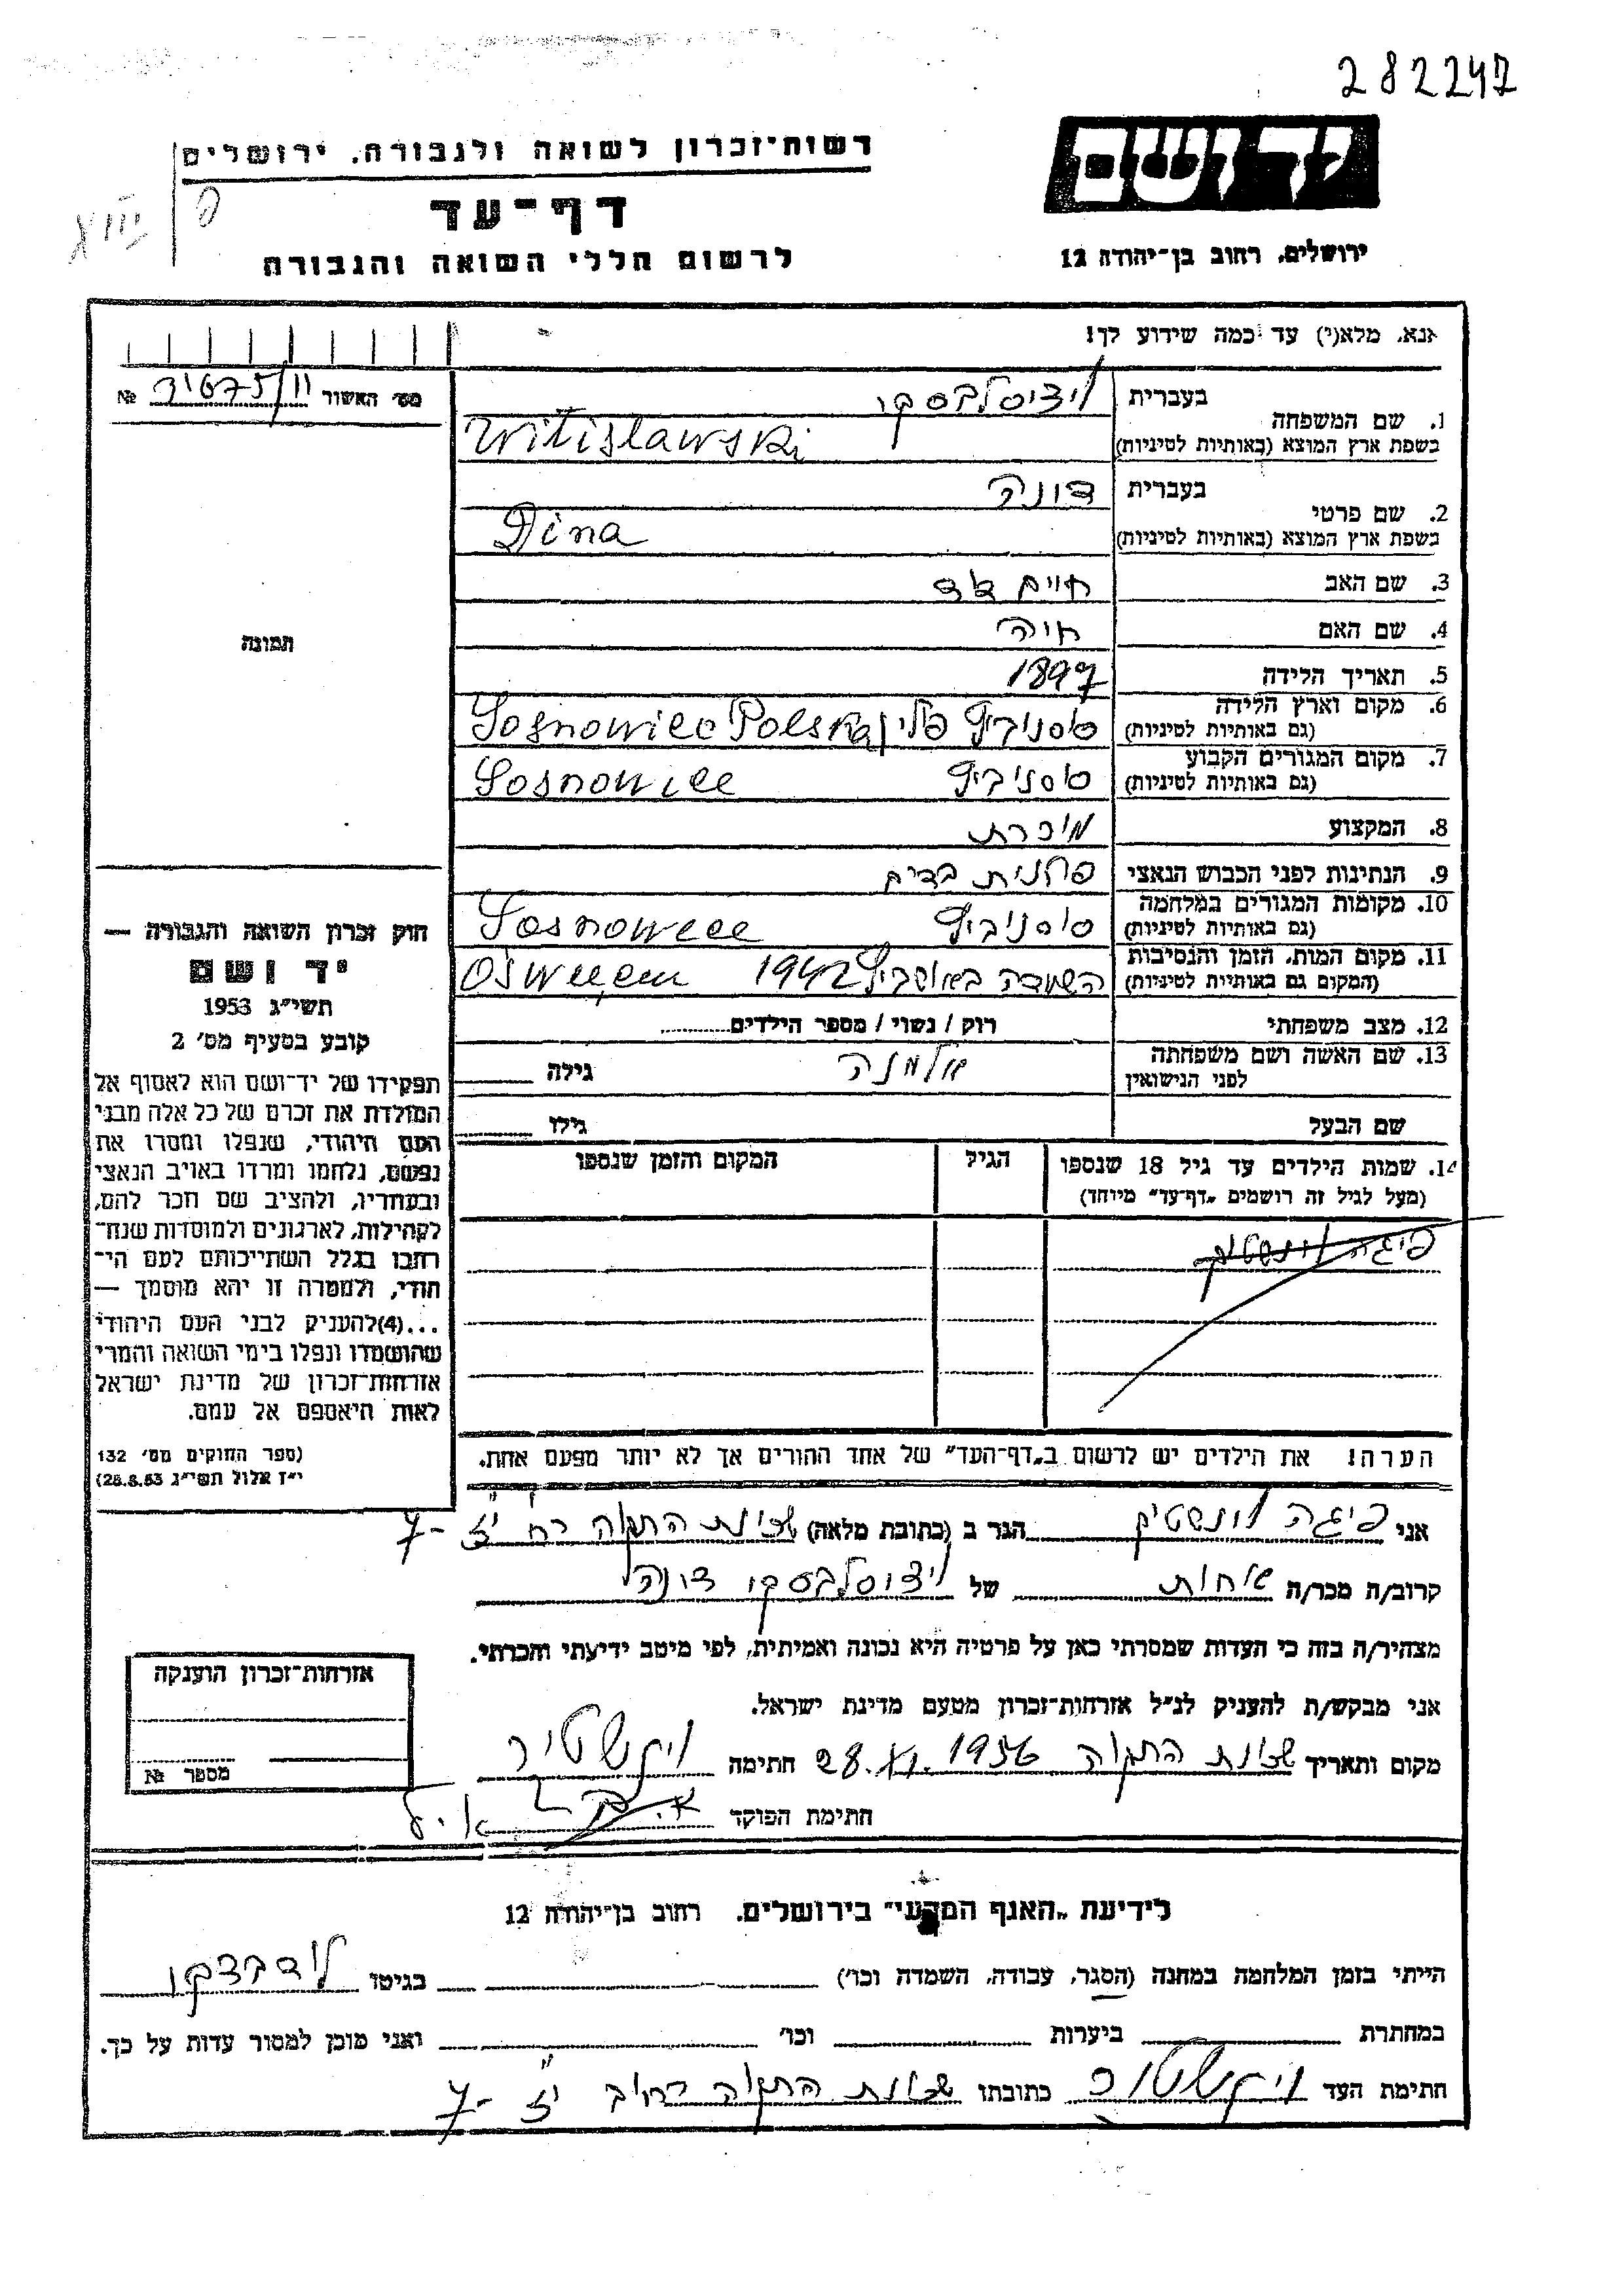 282247
יד ושם
רשות־זכרון לשואה ולגבורה, ירושלים
דף־עד
לרשום חללי השואה והגבורה
ירושלים, רחוב בן־יהודה 12
אנא, מלא(י) עד כמה שידוע לך!
מס' האשור №
1. שם המשפחה
בעברית ויציסלבסקי
בשפת ארץ המוצא (באותיות לטיניות) Witisławski
2. שם פרטי
בעברית דינה
בשפת ארץ המוצא (באותיות לטיניות) Dina
3. שם האב חיים דוד
4. שם האם חיה
תמונה
5. תאריך הלידה 1897
6. מקום וארץ הלידה
(גם באותיות לטיניות) סוסנוביץ פולין Sosnowiec Polska
7. מקום המגורים הקבוע
(גם באותיות לטיניות) סוסנוביץ Sosnowiec
8. המקצוע מוכרת
9. הנתינות לפני הכבוש הנאצי פולנית
10. מקומות המגורים במלחמה
(גם באותיות לטיניות) סוסנוביץ Sosnowiec
11. מקום המות, הזמן והנסיבות
(המקום גם באותיות לטיניות) השמדה באושביץ 1942 Oświęcim
12. מצב משפחתי רוק / נשוי / מספר הילדים
13. שם האשה ושם משפחתה
לפני הנישואין אלמנה גילה
שם הבעל גילו
14. שמות הילדים עד גיל 18 שנספו הגיל המקום והזמן שנספו
(מעל לגיל זה רושמים „דף־עד” מיוחד)
פיגה וינשטיק
הערה! את הילדים יש לרשום ב„דף־העד” של אחד ההורים אך לא יותר מפעם אחת.
חוק זכרון השואה והגבורה —
יד ושם
תשי״ג 1953
קובע בסעיף מס' 2
תפקידו של יד־ושם הוא לאסוף אל
המולדת את זכרם של כל אלה מבני
העם היהודי, שנפלו ומסרו את
נפשם, נלחמו ומרדו באויב הנאצי
ובעוזריו, ולהציב שם וזכר להם,
לקהילות, לארגונים ולמוסדות שנח־
רבו בגלל השתייכותם לעם הי־
הודי, ולמטרה זו יהא מוסמך —
...(4)להעניק לבני העם היהודי
שהושמדו ונפלו בימי השואה והמרי
אזרחות־זכרון של מדינת ישראל
לאות היאספם אל עמם.
(ספר החוקים מס' 132
י״ז אלול תשי״ג 28.8.53)
אני פיגה וינשטיק הגר ב (כתובת מלאה) שכונת התקוה רח י״ז 7
קרוב/ה מכר/ה אחות של ויציסלבסקי דינה
מצהיר/ה בזה כי העדות שמסרתי כאן על פרטיה היא נכונה ואמיתית, לפי מיטב ידיעתי והכרתי.
אני מבקש/ת להעניק לנ״ל אזרחות־זכרון מטעם מדינת ישראל.
מקום ותאריך שכונת התקוה 28.XI.1956 חתימה
חתימת הפוקד
אזרחות־זכרון הוענקה
מספר №
לידיעת „האגף המדעי” בירושלים, רחוב בן־יהודה 12
הייתי בזמן המלחמה במחנה (הסגר, עבודה, השמדה וכו') בגיטו
במחתרת ביערות וכו' ואני מוכן למסור עדות על כך.
חתימת העד כתובתו שכונת התקוה רחוב י״ז 7